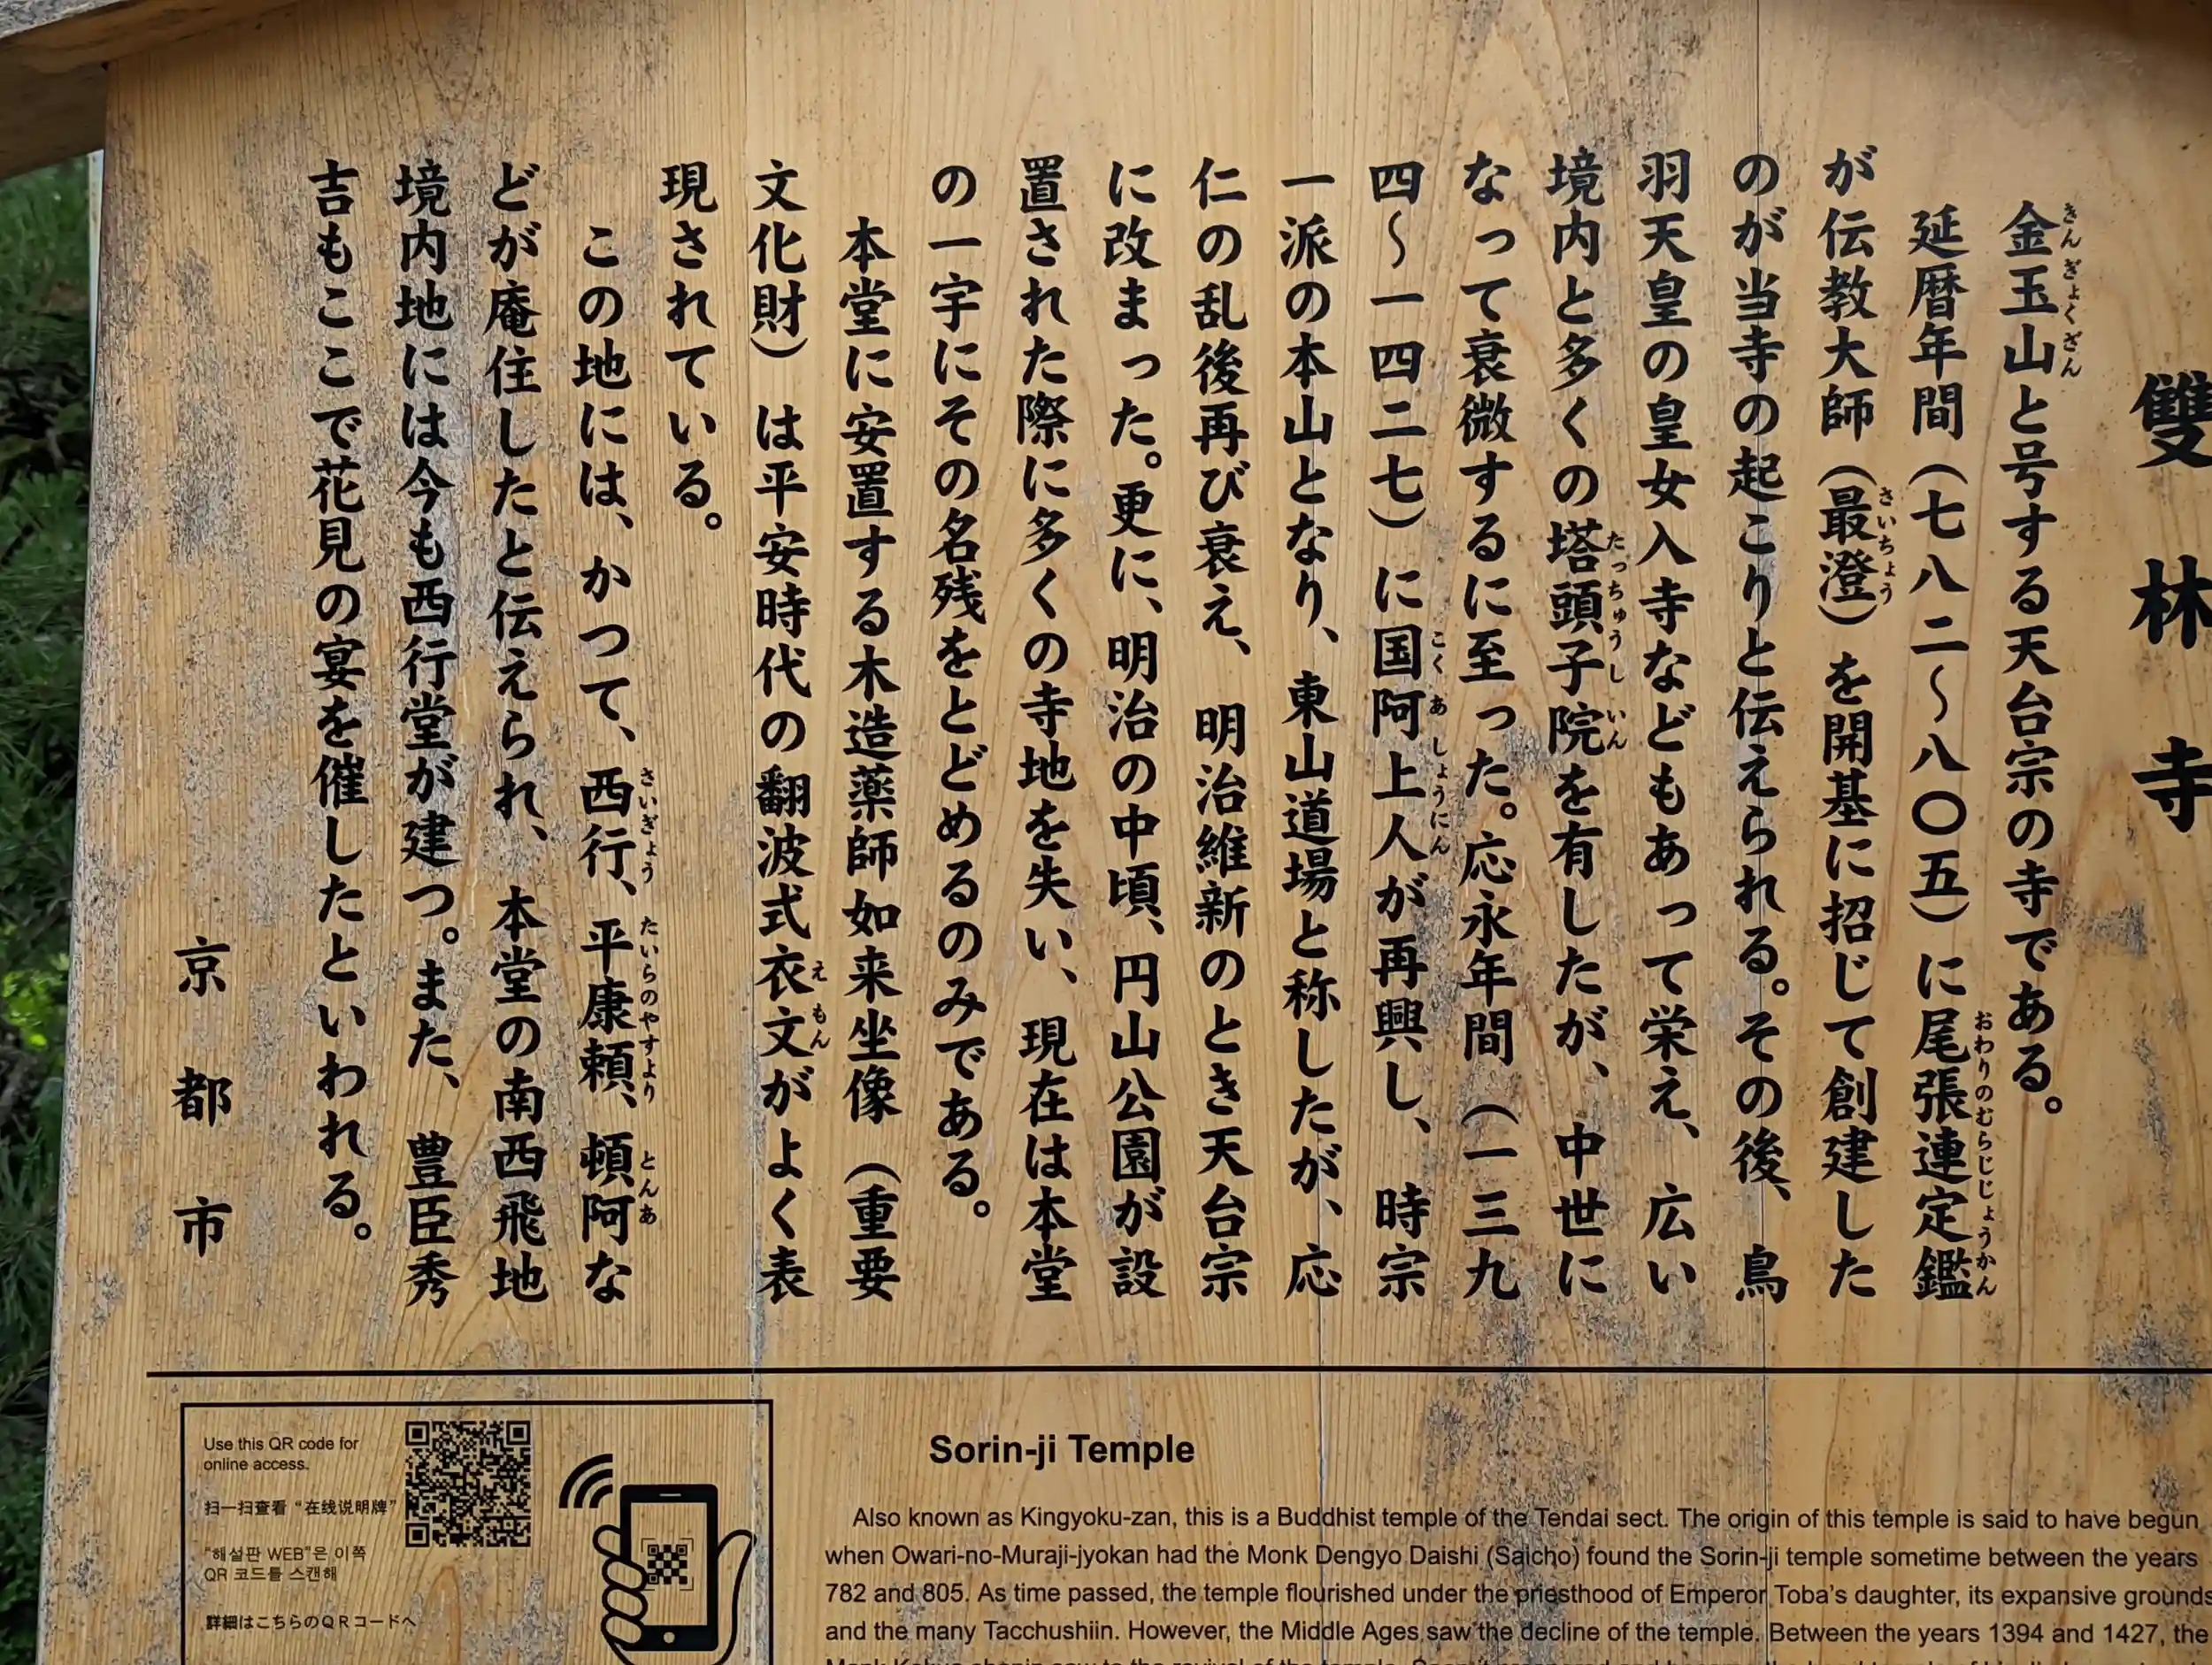 雙林寺
金玉山と号する天台宗の寺である。
延暦年間（七八二〜八〇五）に尾張連定鑑
が伝教大師（最澄）を開基に招じて創建した
のが当寺の起こりと伝えられる。その後、鳥
羽天皇の皇女入寺などもあって栄え、広い
境内と多くの塔頭子院を有したが、中世に
なって衰微するに至った。応永年間（一三九
四〜一四二七）に国阿上人が再興し、時宗
一派の本山となり、東山道場と称したが、応
仁の乱後再び衰え、明治維新のとき天台宗
に改まった。更に、明治の中頃、円山公園が設
置された際に多くの寺地を失い、現在は本堂
の一宇にその名残をとどめるのみである。
本堂に安置する木造薬師如来坐像（重要
文化財）は平安時代の翻波式衣文がよく表
現されている。
この地には、かつて、西行、平康頼、頓阿な
どが庵住したと伝えられ、本堂の南西飛地
境内地には今も西行堂が建つ。また、豊臣秀
吉もここで花見の宴を催したといわれる。
京都市
Use this QR code for
online access.
扫一扫查看“在线说明牌”
"해설판 WEB"은 이쪽
QR 코드를 스캔해
詳細はこちらのQRコードへ
Sorin-ji Temple
Also known as Kingyoku-zan, this is a Buddhist temple of the Tendai sect. The origin of this temple is said to have begun
when Owari-no-Muraji-jyokan had the Monk Dengyo Daishi (Saicho) found the Sorin-ji temple sometime between the years
782 and 805. As time passed, the temple flourished under the priesthood of Emperor Toba's daughter, its expansive grounds
and the many Tacchushiin. However, the Middle Ages saw the decline of the temple. Between the years 1394 and 1427, the